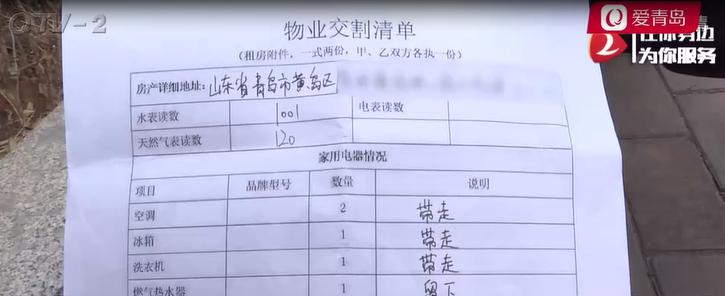 QTV-2
爱青岛
在你身边
为你服务
物业交割清单
（租房附件，一式两份，甲、乙双方各执一份）
房产详细地址：山东省青岛市黄岛区
水表读数 1001 电表读数
天然气表读数 120
家用电器情况
项目 品牌型号 数量 说明
空调 2 带走
冰箱 1 带走
洗衣机 1 带走
燃气热水器 1 留下